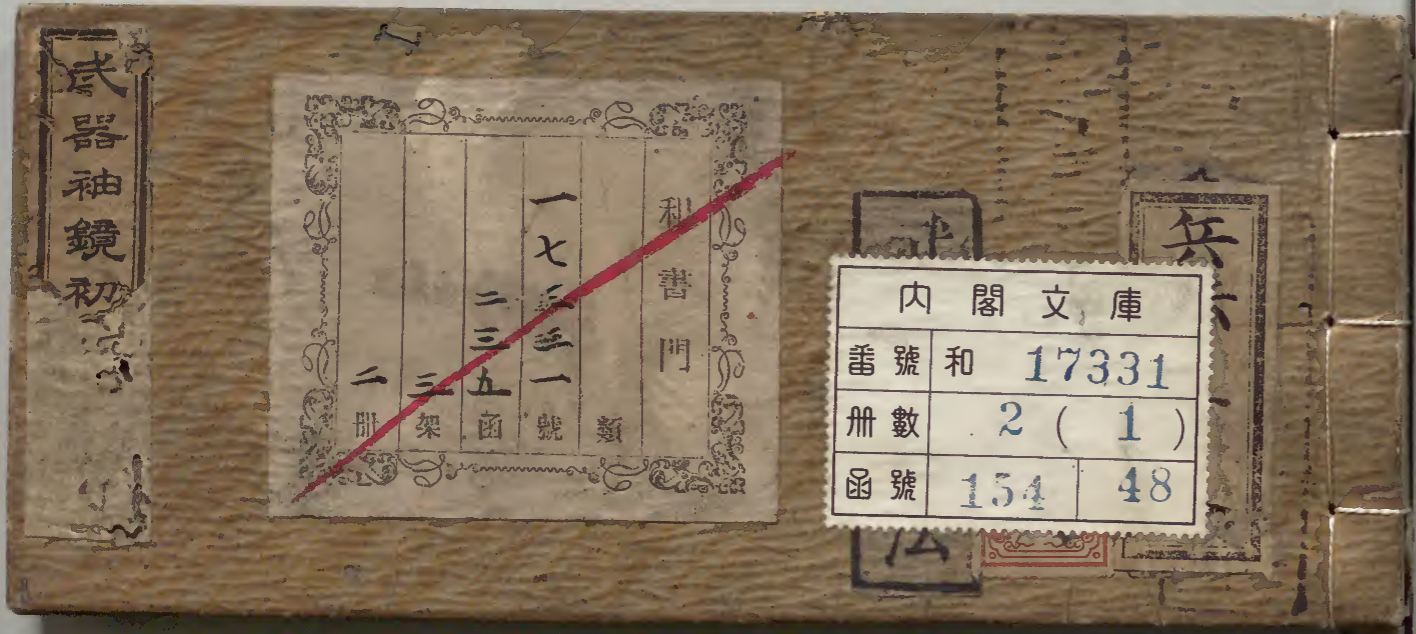 武器袖鏡初
和書門
類
一七三三一號
二三九函
三架
二冊
內閣文庫
番號 和 17331
冊數 2 ( 1 )
函號 154 48
兵
法